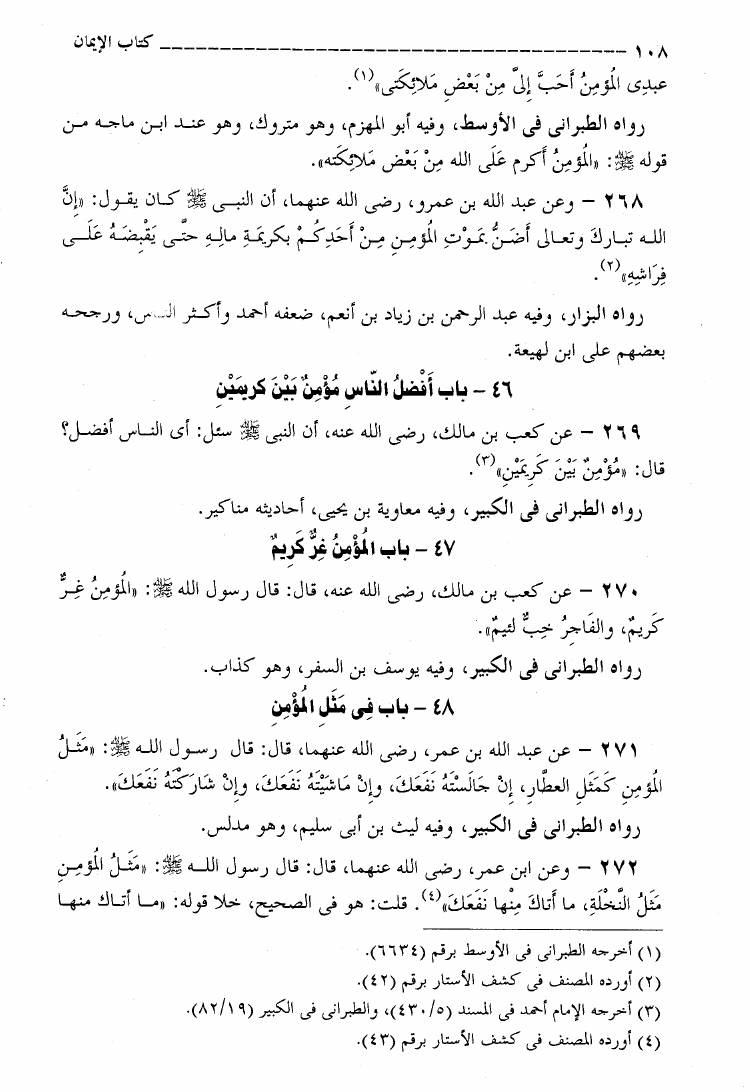 ١٠٨ ــــــــــــــــــــــــــــــــــــــــ كتاب الإيمان
عبدى المُؤمِنُ أَحَبَّ إِلىَّ مِنْ بَعْضِ مَلائِكَتى»(١).
رواه الطبرانى فى الأوسط، وفيه أبو المهزم، وهو متروك، وهو عند ابن ماجه من
قوله ﷺ: «المُؤمِنُ أَكرم عَلَى الله مِنْ بَعْض مَلائِكَته».
٢٦٨ – وعن عبد الله بن عمرو، رضى الله عنهما، أن النبى ﷺ كان يقول: «إِنَّ
الله تبارك وتعالى أَضَنُّ بمَوْتِ المُؤمِنِ مِنْ أَحَدِكُمْ بكريمَةِ مالِهِ حتَّى يَقْبِضَهُ عَلَى
فِرَاشِهِ»(٢).
رواه البزار، وفيه عبد الرحمن بن زياد بن أنعم، ضعفه أحمد وأكثر الناس، ورجحه
بعضهم على ابن لهيعة.
٤٦ – باب أَفْضَلُ النَّاسِ مُؤْمِنٌ بَيْنَ كريمَيْنِ
٢٦٩ – عن كعب بن مالك، رضى الله عنه، أن النبى ﷺ سئل: أى الناس أفضل؟
قال: «مُؤْمِنٌ بَيْنَ كَرِيمَيْنِ»(٣).
رواه الطبرانى فى الكبير، وفيه معاوية بن يحيى، أحاديثه مناكير.
٤٧ – باب المُؤْمِنُ غِرٌّ كَرِيمٌ
٢٧٠ – عن كعب بن مالك، رضى الله عنه، قال: قال رسول الله ﷺ: «المُؤمِنُ غِرٌّ
كَرِيمٌ، والفَاجِرُ خِبٌّ لئيمٌ».
رواه الطبرانى فى الكبير، وفيه يوسف بن السفر، وهو كذاب.
٤٨ – باب فِى مَثَلِ المُؤْمِنِ
٢٧١ – عن عبد الله بن عمر، رضى الله عنهما، قال: قال رسول الله ﷺ: «مَثَلُ
المُؤمِنِ كَمَثَلِ العطَّارِ، إِنْ جَالَسْتَهُ نَفَعَكَ، وإِنْ مَاشَيْتَهُ نَفَعَكَ، وإِنْ شَارَكْتَهُ نَفَعَكَ».
رواه الطبرانى فى الكبير، وفيه ليث بن أبى سليم، وهو مدلس.
٢٧٢ – وعن ابن عمر، رضى الله عنهما، قال: قال رسول الله ﷺ: «مَثَلُ المُؤمِنِ
مَثَلُ النَّخْلَةِ، ما أَتاكَ مِنْها نَفَعَكَ»(٤). قلت: هو فى الصحيح، خلا قوله: «ما أتاك منها
(١) أخرجه الطبرانى فى الأوسط برقم (٦٦٣٤).
(٢) أورده المصنف فى كشف الأستار برقم (٤٢).
(٣) أخرجه الإمام أحمد فى المسند (٤٣٠/٥)، والطبرانى فى الكبير (٨٢/١٩).
(٤) أورده المصنف فى كشف الأستار برقم (٤٣).